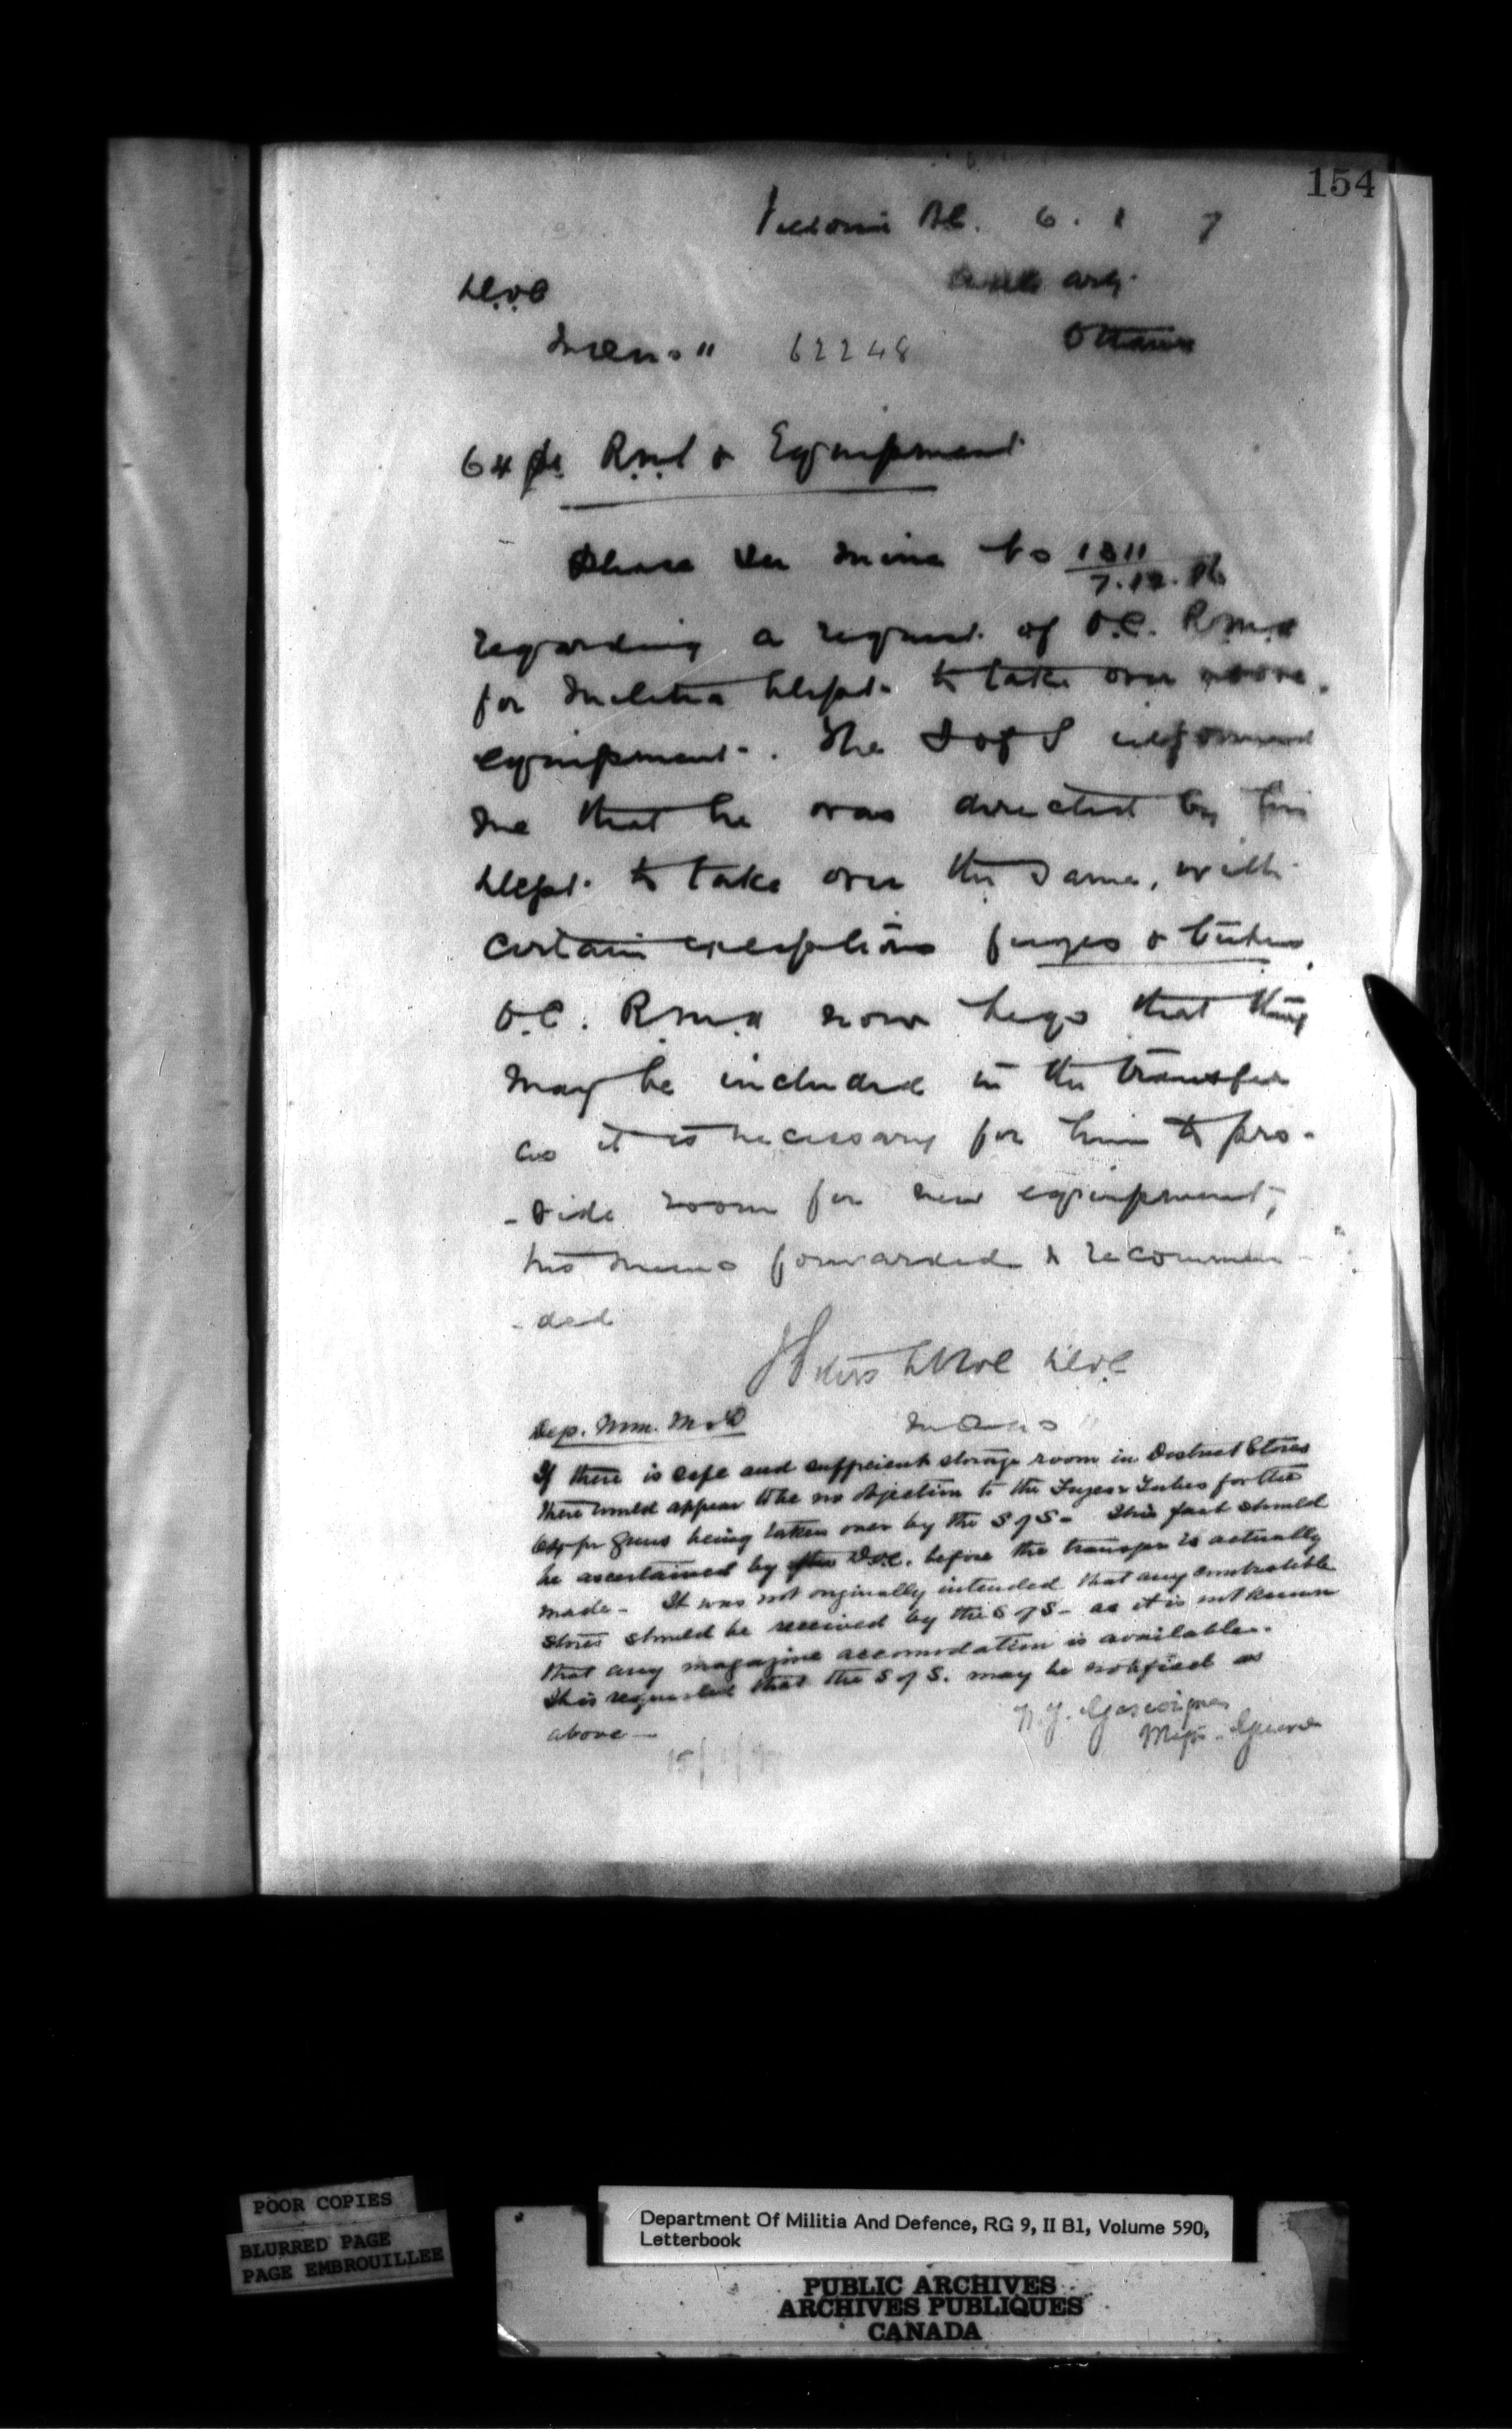 154
Victoria BC. 6. 1 7
D.O.C
Ottawa
Mem.o 11 62248
64 pr R.M.L & Equipment
Please see mine No 1311
7.12.96
regarding a request of O.C. R.M.A
for Militia Dept. to take over above
equipment. The S of S informed
me that he was directed by his
Dept. to take over the same, with
certain exceptions fuzes & tubes
O.C. R.M.A now begs that they
may be included in the transfer
as it is necessary for him to pro-
-vide room for new equipment,
his memo forwarded & recommen-
-ded
J Peters D.O.C
Dep. Min. M & D
If there is safe and sufficient storage room in District Stores
there would appear to be no objection to the Fuzes & Tubes for the
64-pr guns being taken over by the S of S - This fact should
be ascertained by the D.O.C. before the transfer is actually
made - It was not originally intended that any combustible
stores should be received by the S of S - as it is not known
that any magazine accomodation is available.
It is requested that the S of S. may be notified as
above -
W. J. Gascoigne
Major - General
15/1/9
POOR COPIES
BLURRED PAGE
PAGE EMBROUILLEE
Department Of Militia And Defence, RG 9, II B1, Volume 590,
Letterbook
PUBLIC ARCHIVES
ARCHIVES PUBLIQUES
CANADA